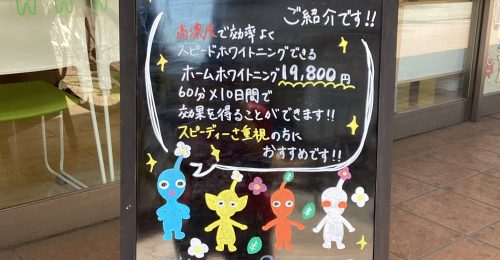 ご紹介です!!
高濃度で効率よく
スピードホワイトニングできる
ホームホワイトニング19,800円
60分×10日間で
効果を得ることができます!!
スピーディーさ重視の方に
おすすめです!!